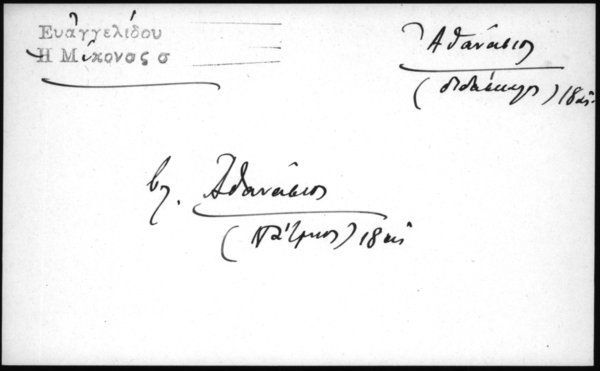 Εὐαγγελίδου
Ἡ Μύκονος σ
Ἀθανάσιος
(διδάσκαλος) 18 αἰ.
βλ. Ἀθανάσιος
(Πάτμιος) 18 αἰ